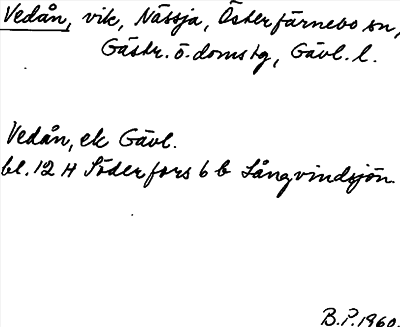 Vedån, vik, Nässja, Österfärnebo sn,
Gästr. ö. domstg, Gävl. l.
Vedån, ek Gävl.
bl. 12 H Söderfors 6 b Långvindsjön
B.P. 1960.